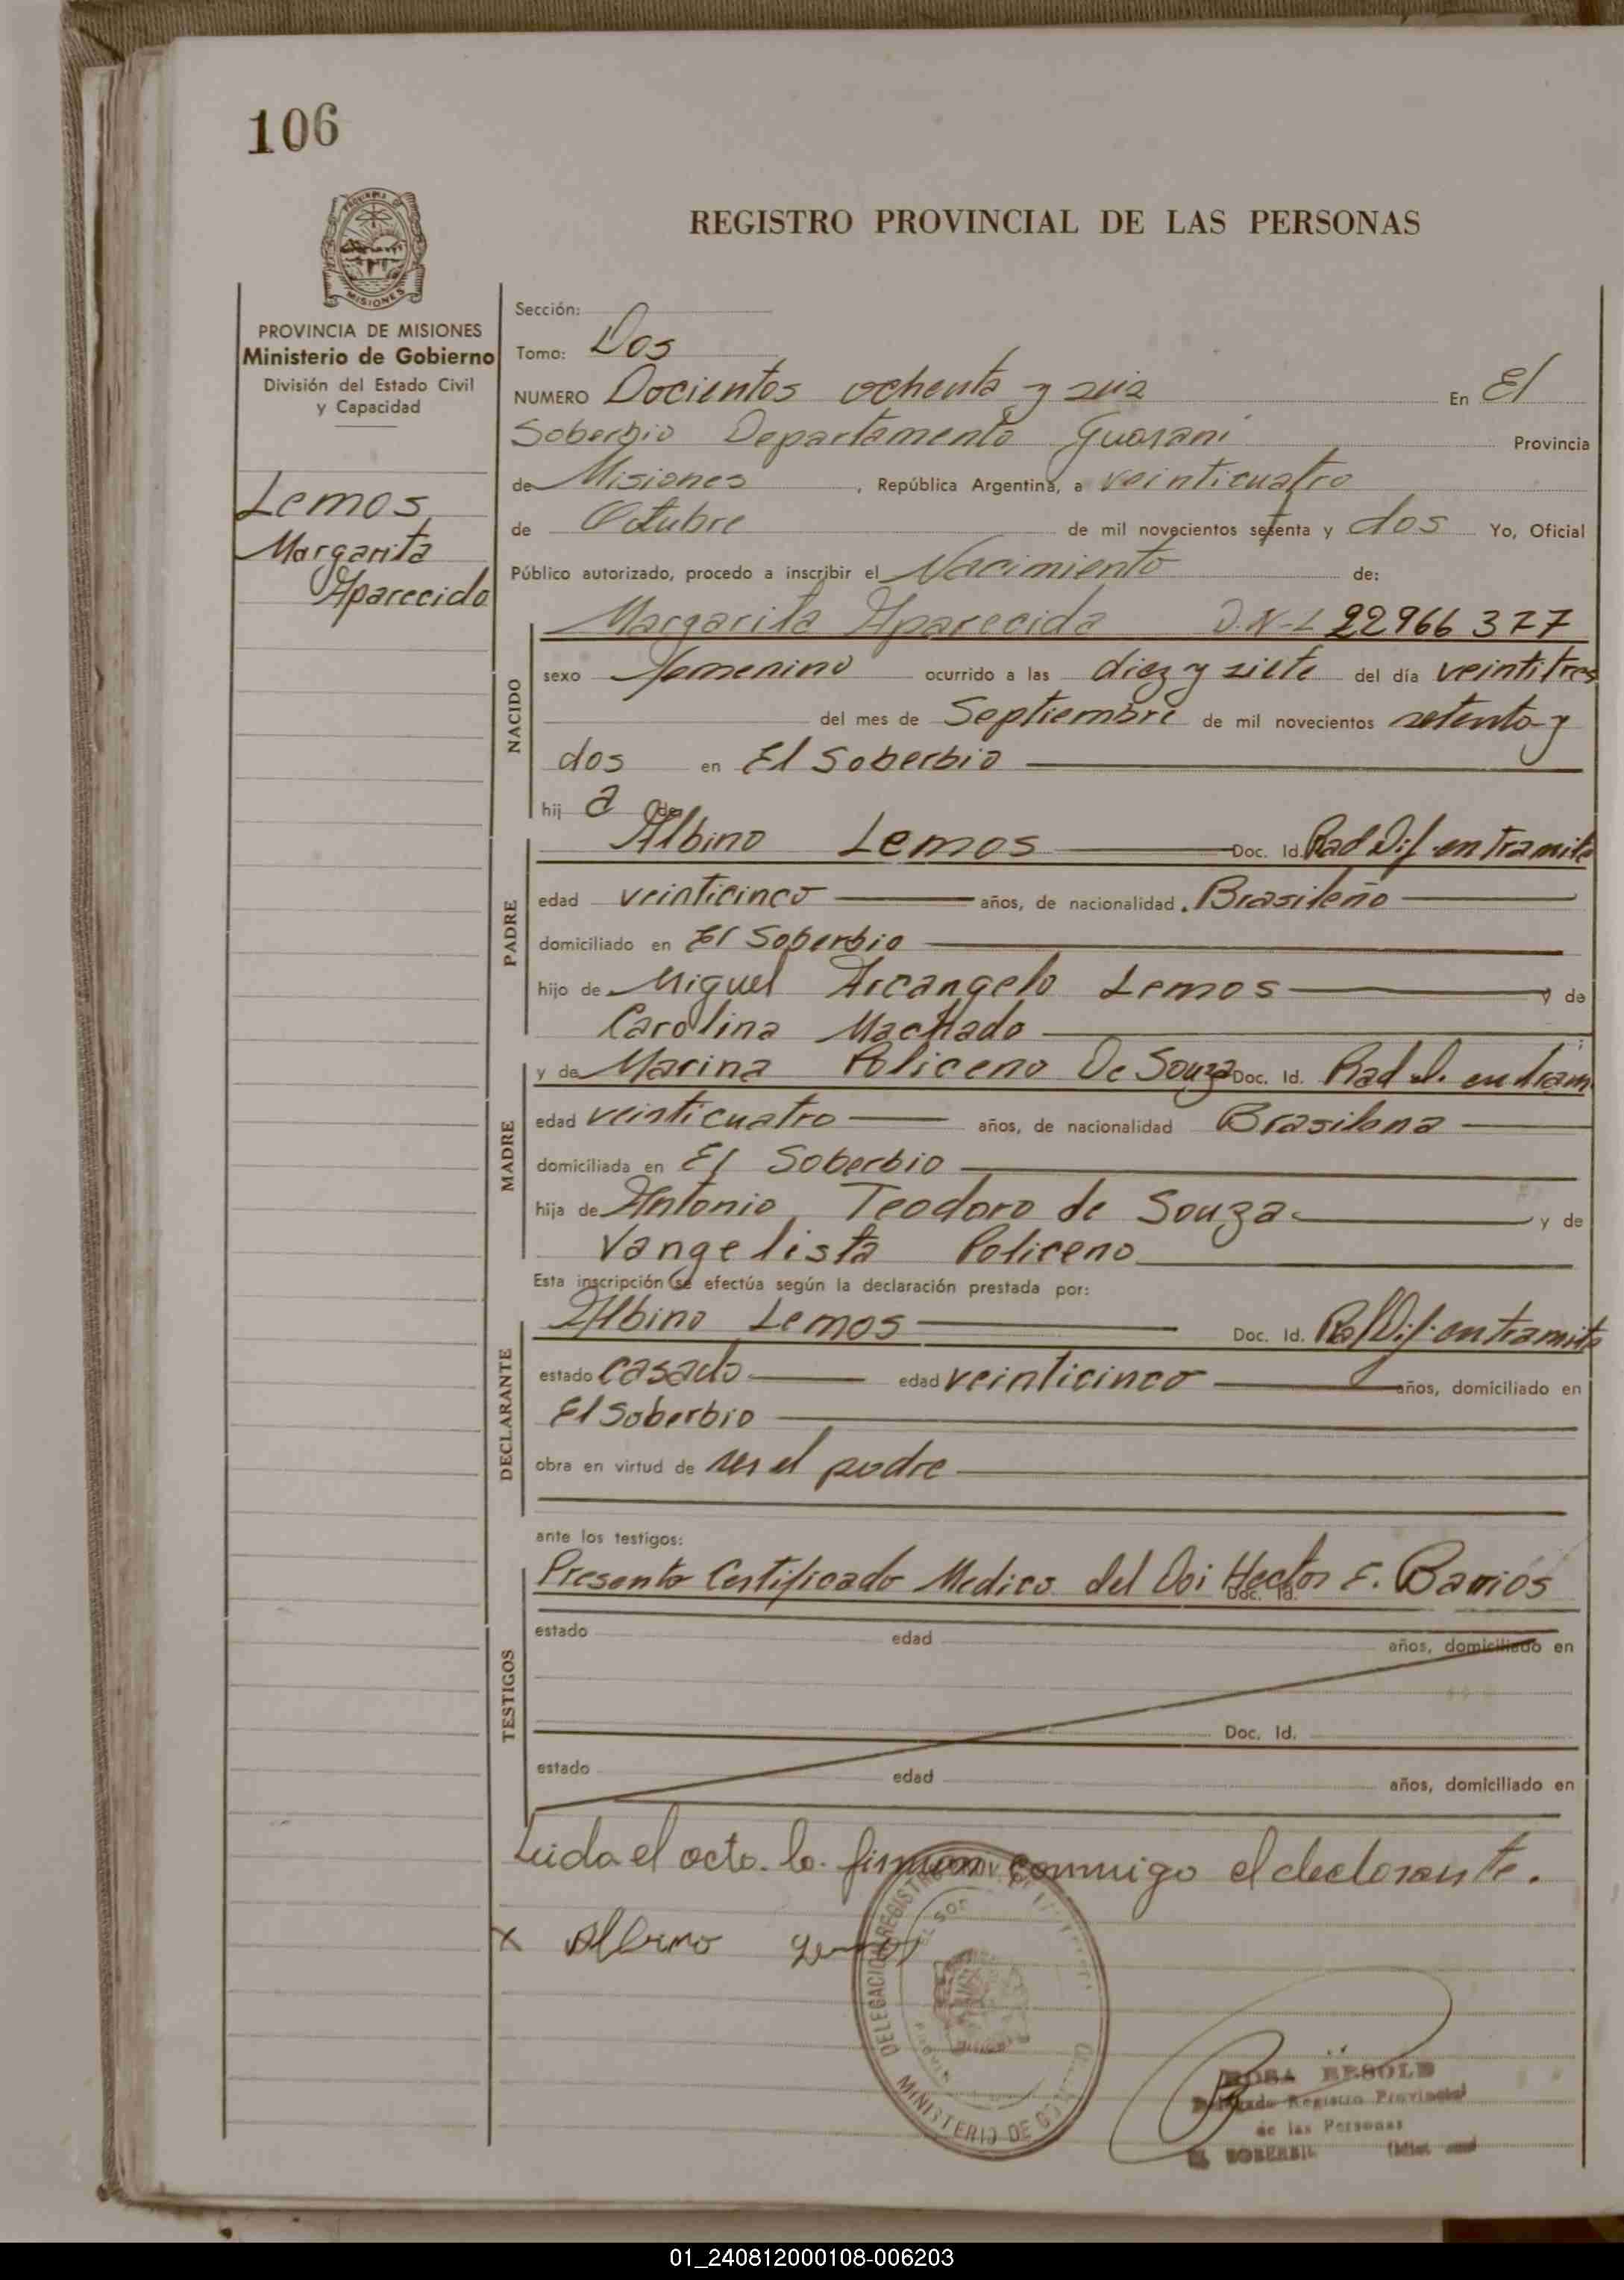 106
REGISTRO PROVINCIAL DE LAS PERSONAS
MISIONES
PROVINCIA DE MISIONES
Ministerio de Gobierno
División del Estado Civil
y Capacidad
Lemos
Margarita
Aparecida
Sección:
Tomo: Dos
NUMERO Docientos ochenta y seis En El
Soberbio Departamento Guarani Provincia
de Misiones, República Argentina, a veinticuatro
de Octubre de mil novecientos setenta y dos Yo, Oficial
Público autorizado, procedo a inscribir el Nacimiento de:
NACIDO
Margarita Aparecida D.N.I 22966377
sexo femenino ocurrido a las diez y siete del día veintitres
del mes de Septiembre de mil novecientos setenta y
dos en El Soberbio
hij a de
PADRE
Albino Lemos Doc. Id. Rad Dif. en tramite
edad veinticinco años, de nacionalidad Brasileño
domiciliado en El Soberbio
hijo de Miguel Arcangelo Lemos y de
Carolina Machado
MADRE
y de Marina Policeno De Souza Doc. Id. Rad D. en tram
edad veinticuatro años, de nacionalidad Brasilena
domiciliada en El Soberbio
hija de Antonio Teodoro de Souza y de
Vangelista Policeno
Esta inscripción se efectúa según la declaración prestada por:
DECLARANTE
Albino Lemos Doc. Id. Rad Dif. en tramite
estado casado edad veinticinco años, domiciliado en
El Soberbio
obra en virtud de ser el padre
ante los testigos:
TESTIGOS
Presento Certificado Medico del Hector E. Barrios
Doc. Id.
estado edad años, domiciliado en
Doc. Id.
estado edad años, domiciliado en
Leida el acta la firman conmigo el declarante.
x Albino Lemos
DELEGACION REGISTRO
MINISTERIO DE
ROSA RESOLD
Delegado Registro Provincial
de las Personas
EL SOBERBIO
01_240812000108-006203